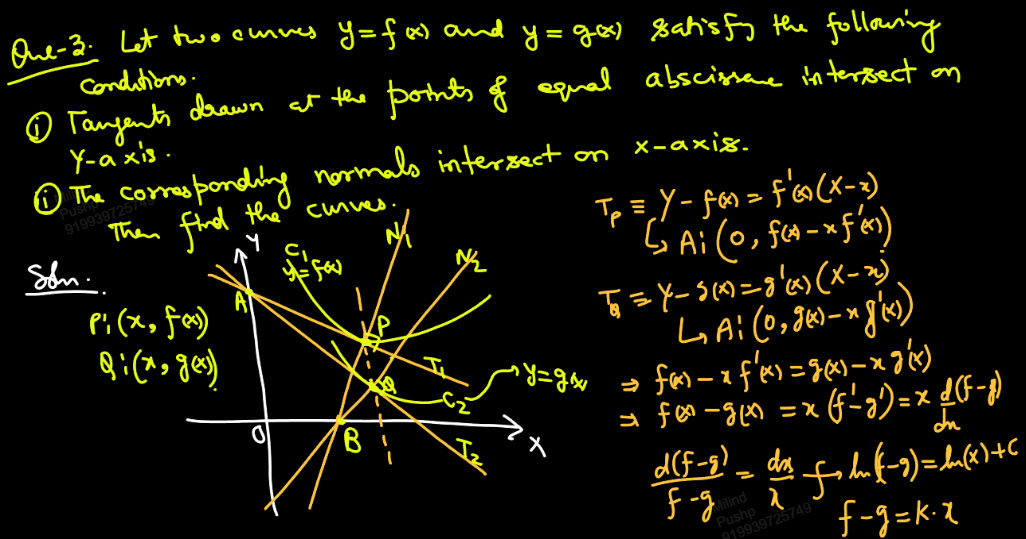 Que-3. Let two curves y = f(x) and y = g(x) satisfy the following
conditions.
(i) Tangents drawn at the points of equal abscissae intersect on
Y-axis.
(ii) The corresponding normals intersect on x-axis.
Then find the curves.
Milind
Pushp
919939725749
Soln.
P: (x, f(x))
Q: (x, g(x))
Y
C₁
y = f(x)
N₁
N₂
A
P
T₁
Q
C₂
y = g(x)
O
B
T₂
X
T_P ≡ Y - f(x) = f'(x)(X - x)
↳ A: (0, f(x) - x f'(x))
T_Q ≡ Y - g(x) = g'(x)(X - x)
↳ A: (0, g(x) - x g'(x))
⇒ f(x) - x f'(x) = g(x) - x g'(x)
⇒ f(x) - g(x) = x (f' - g') = x d(f-g)/dx
d(f-g)/(f-g) = dx/x ∫→ ln(f-g) = ln(x) + C
f - g = K·x
Milind
Pushp
919939725749